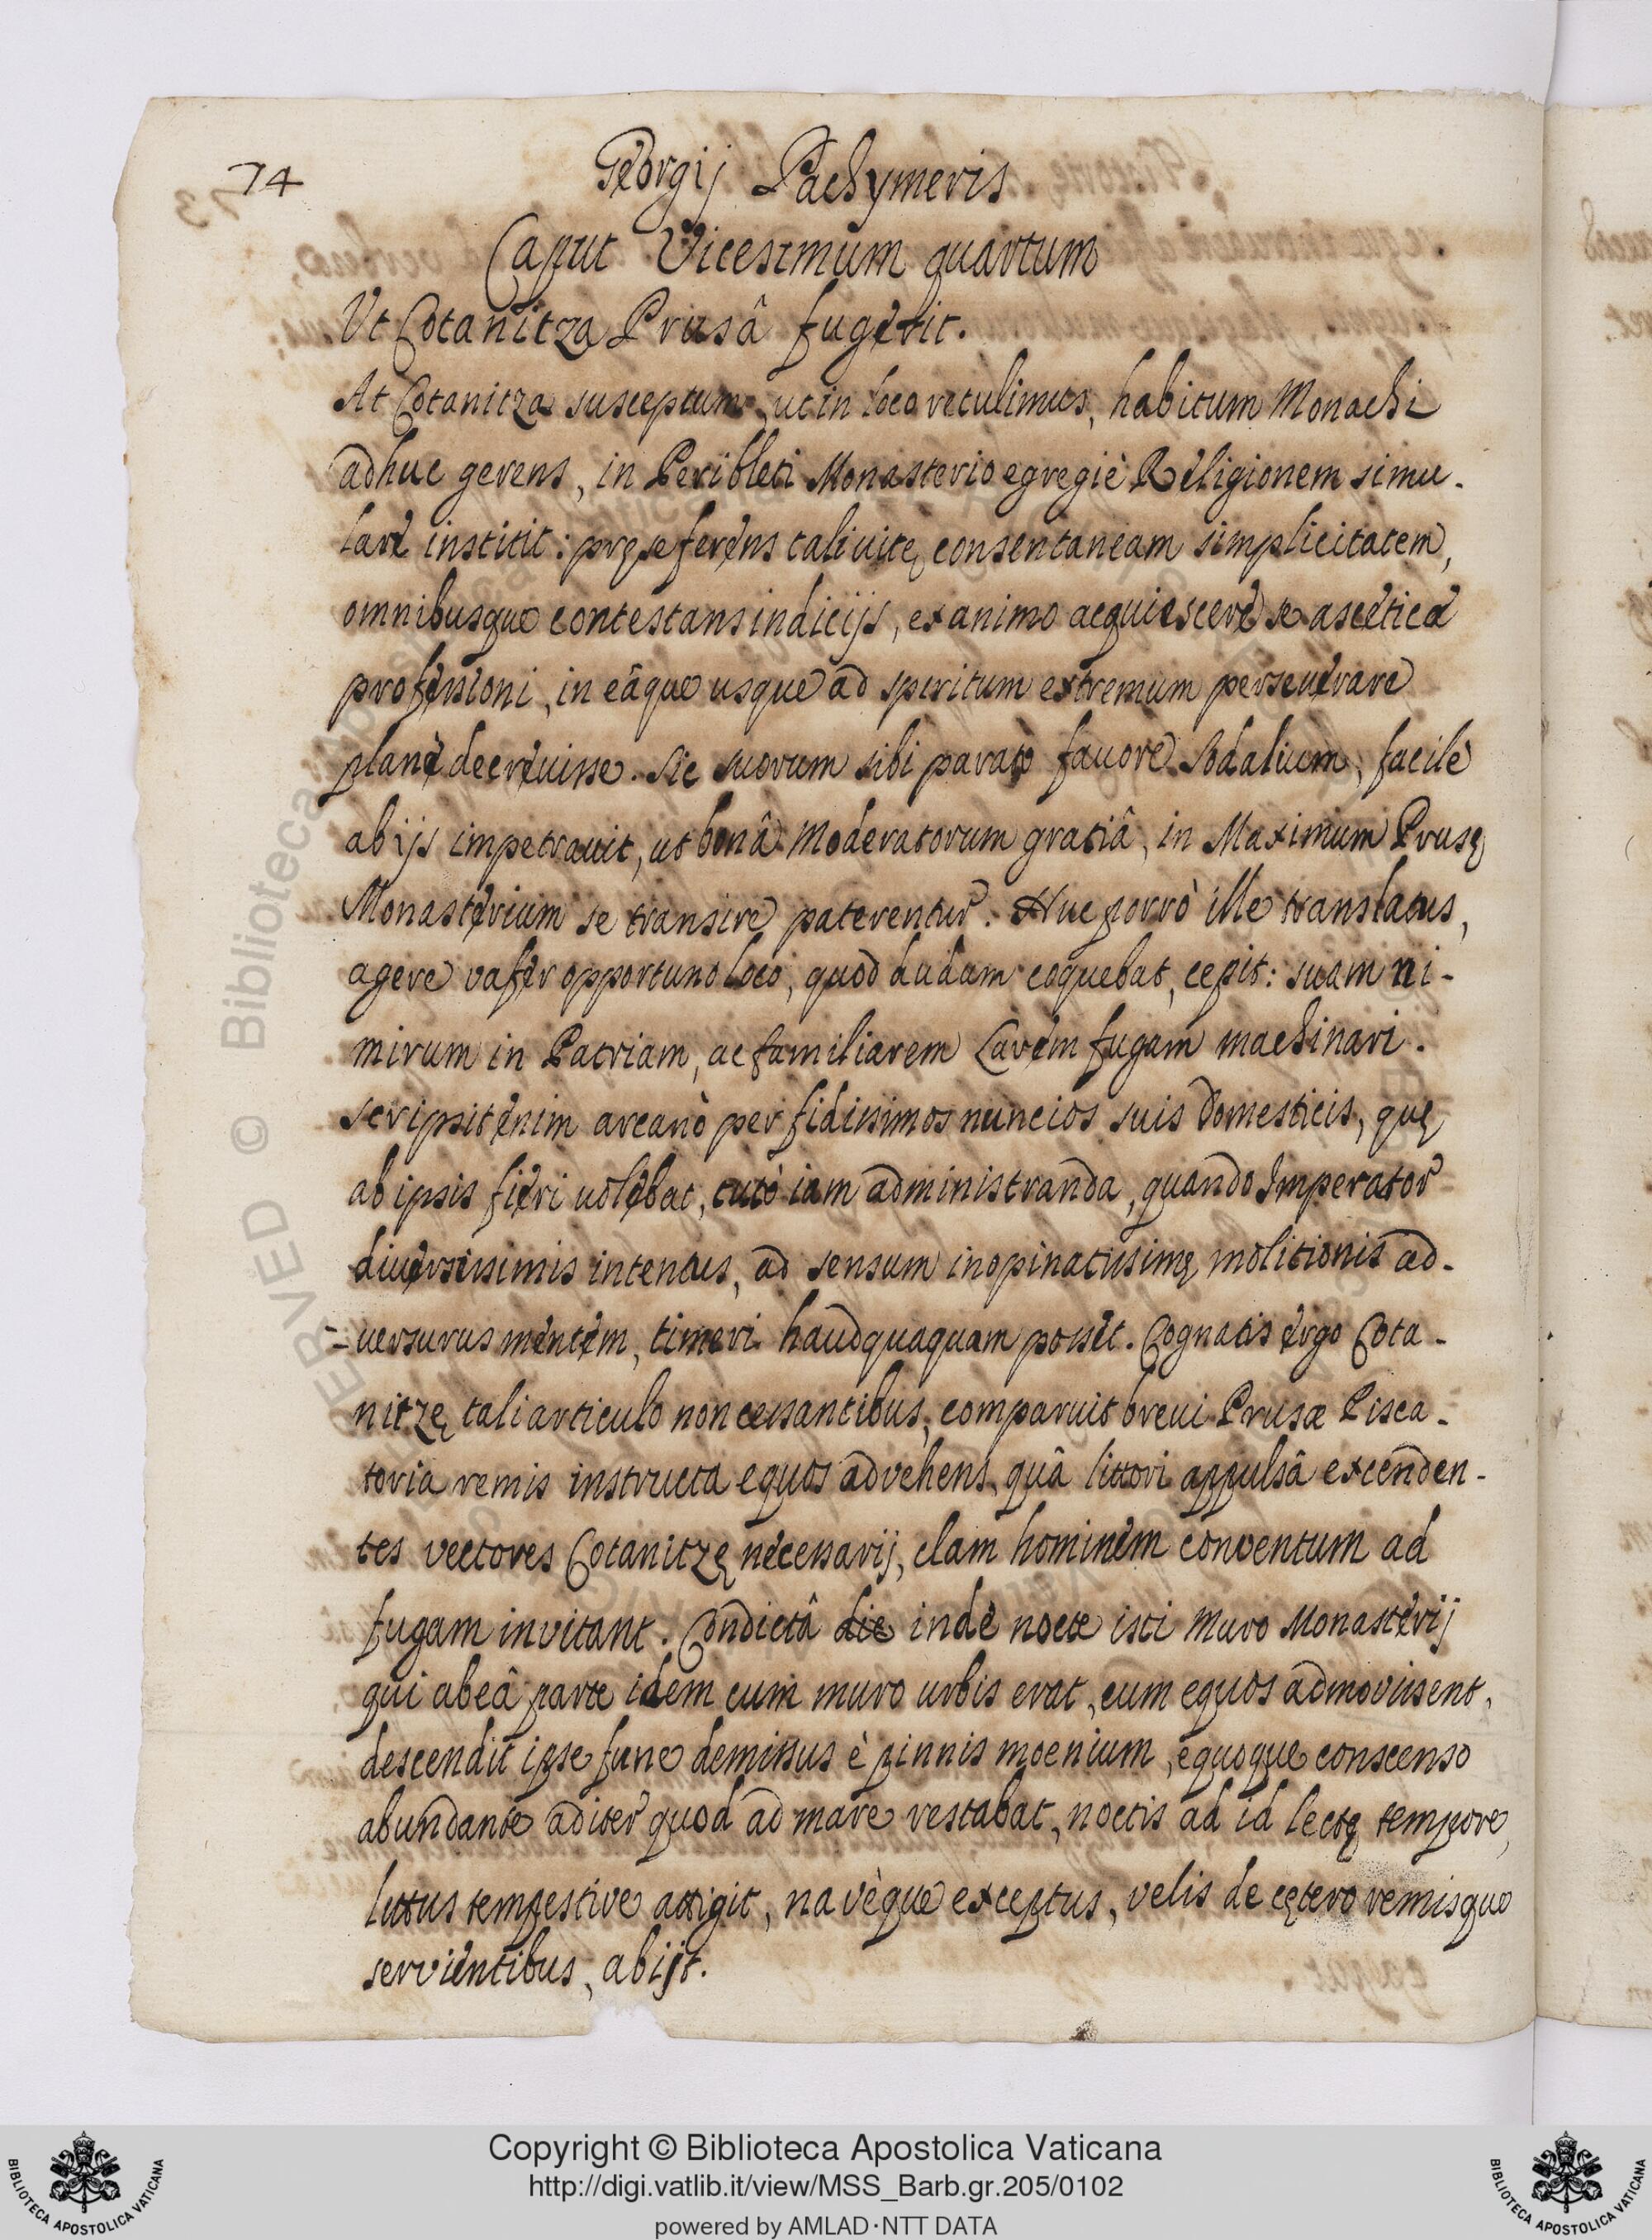 74
Georgij Pachymeris
Caput Vicesimum quartum
Ut Cotanitza Prusâ fugerit.
At Cotanitza susceptum, ut in loco retulimus, habitum Monachi
adhuc gerens, in Peribleti Monasterio egregiè Religionem simu-
lare institit: pręseferens tali vitę consentaneam simplicitatem,
omnibusque contestans indicijs, ex animo acquiescere se asceticæ
professioni, in eâque usque ad spiritum extremum perseuerare
planè decreuisse. Sic suorum sibi parato fauore sodalium, facilè
ab ijs impetrauit, ut bonâ Moderatorum gratiâ, in Maximum Prusę
Monasterium se transire paterentur. Huc porrò ille translatus,
agere vafer opportuno loco, quod dudum coquebat, cepit: suam ni-
mirum in Patriam, ac familiarem Larem fugam machinari.
Scripsit enim arcanò per fidissimos nuncios suis Domesticis, quę
ab ipsis fieri uolebat, tutò iam administranda, quando Imperator
diuersissimis intentus, ad sensum inopinatissimę molitionis ad-
-uersurus mentem, timeri haudquaquam posset. Cognatis ergo Cota-
nitzę tali articulo non cessantibus, comparuit breui Prusæ Pisca-
toria remis instructa equos advehens, quâ littori appulsâ excenden-
tes vectores Cotanitzę necessarij, clam hominem conventum ad
fugam invitant. Condictâ die inde nocte isti muro Monasterij
qui ab eâ parte idem cum muro urbis erat, cum equos admovissent,
descendit ipse fune demissus è pinnis moenium, equoque conscenso
abundante ad iter quod ad mare restabat, noctis ad id lectę tempore,
littus tempestive attigit, navèque exceptus, velis de cętero remisque
servientibus, abijt.
Copyright © Biblioteca Apostolica Vaticana
http://digi.vatlib.it/view/MSS_Barb.gr.205/0102
powered by AMLAD·NTT DATA
BIBLIOTECA APOSTOLICA VATICANA
BIBLIOTECA APOSTOLICA VATICANA